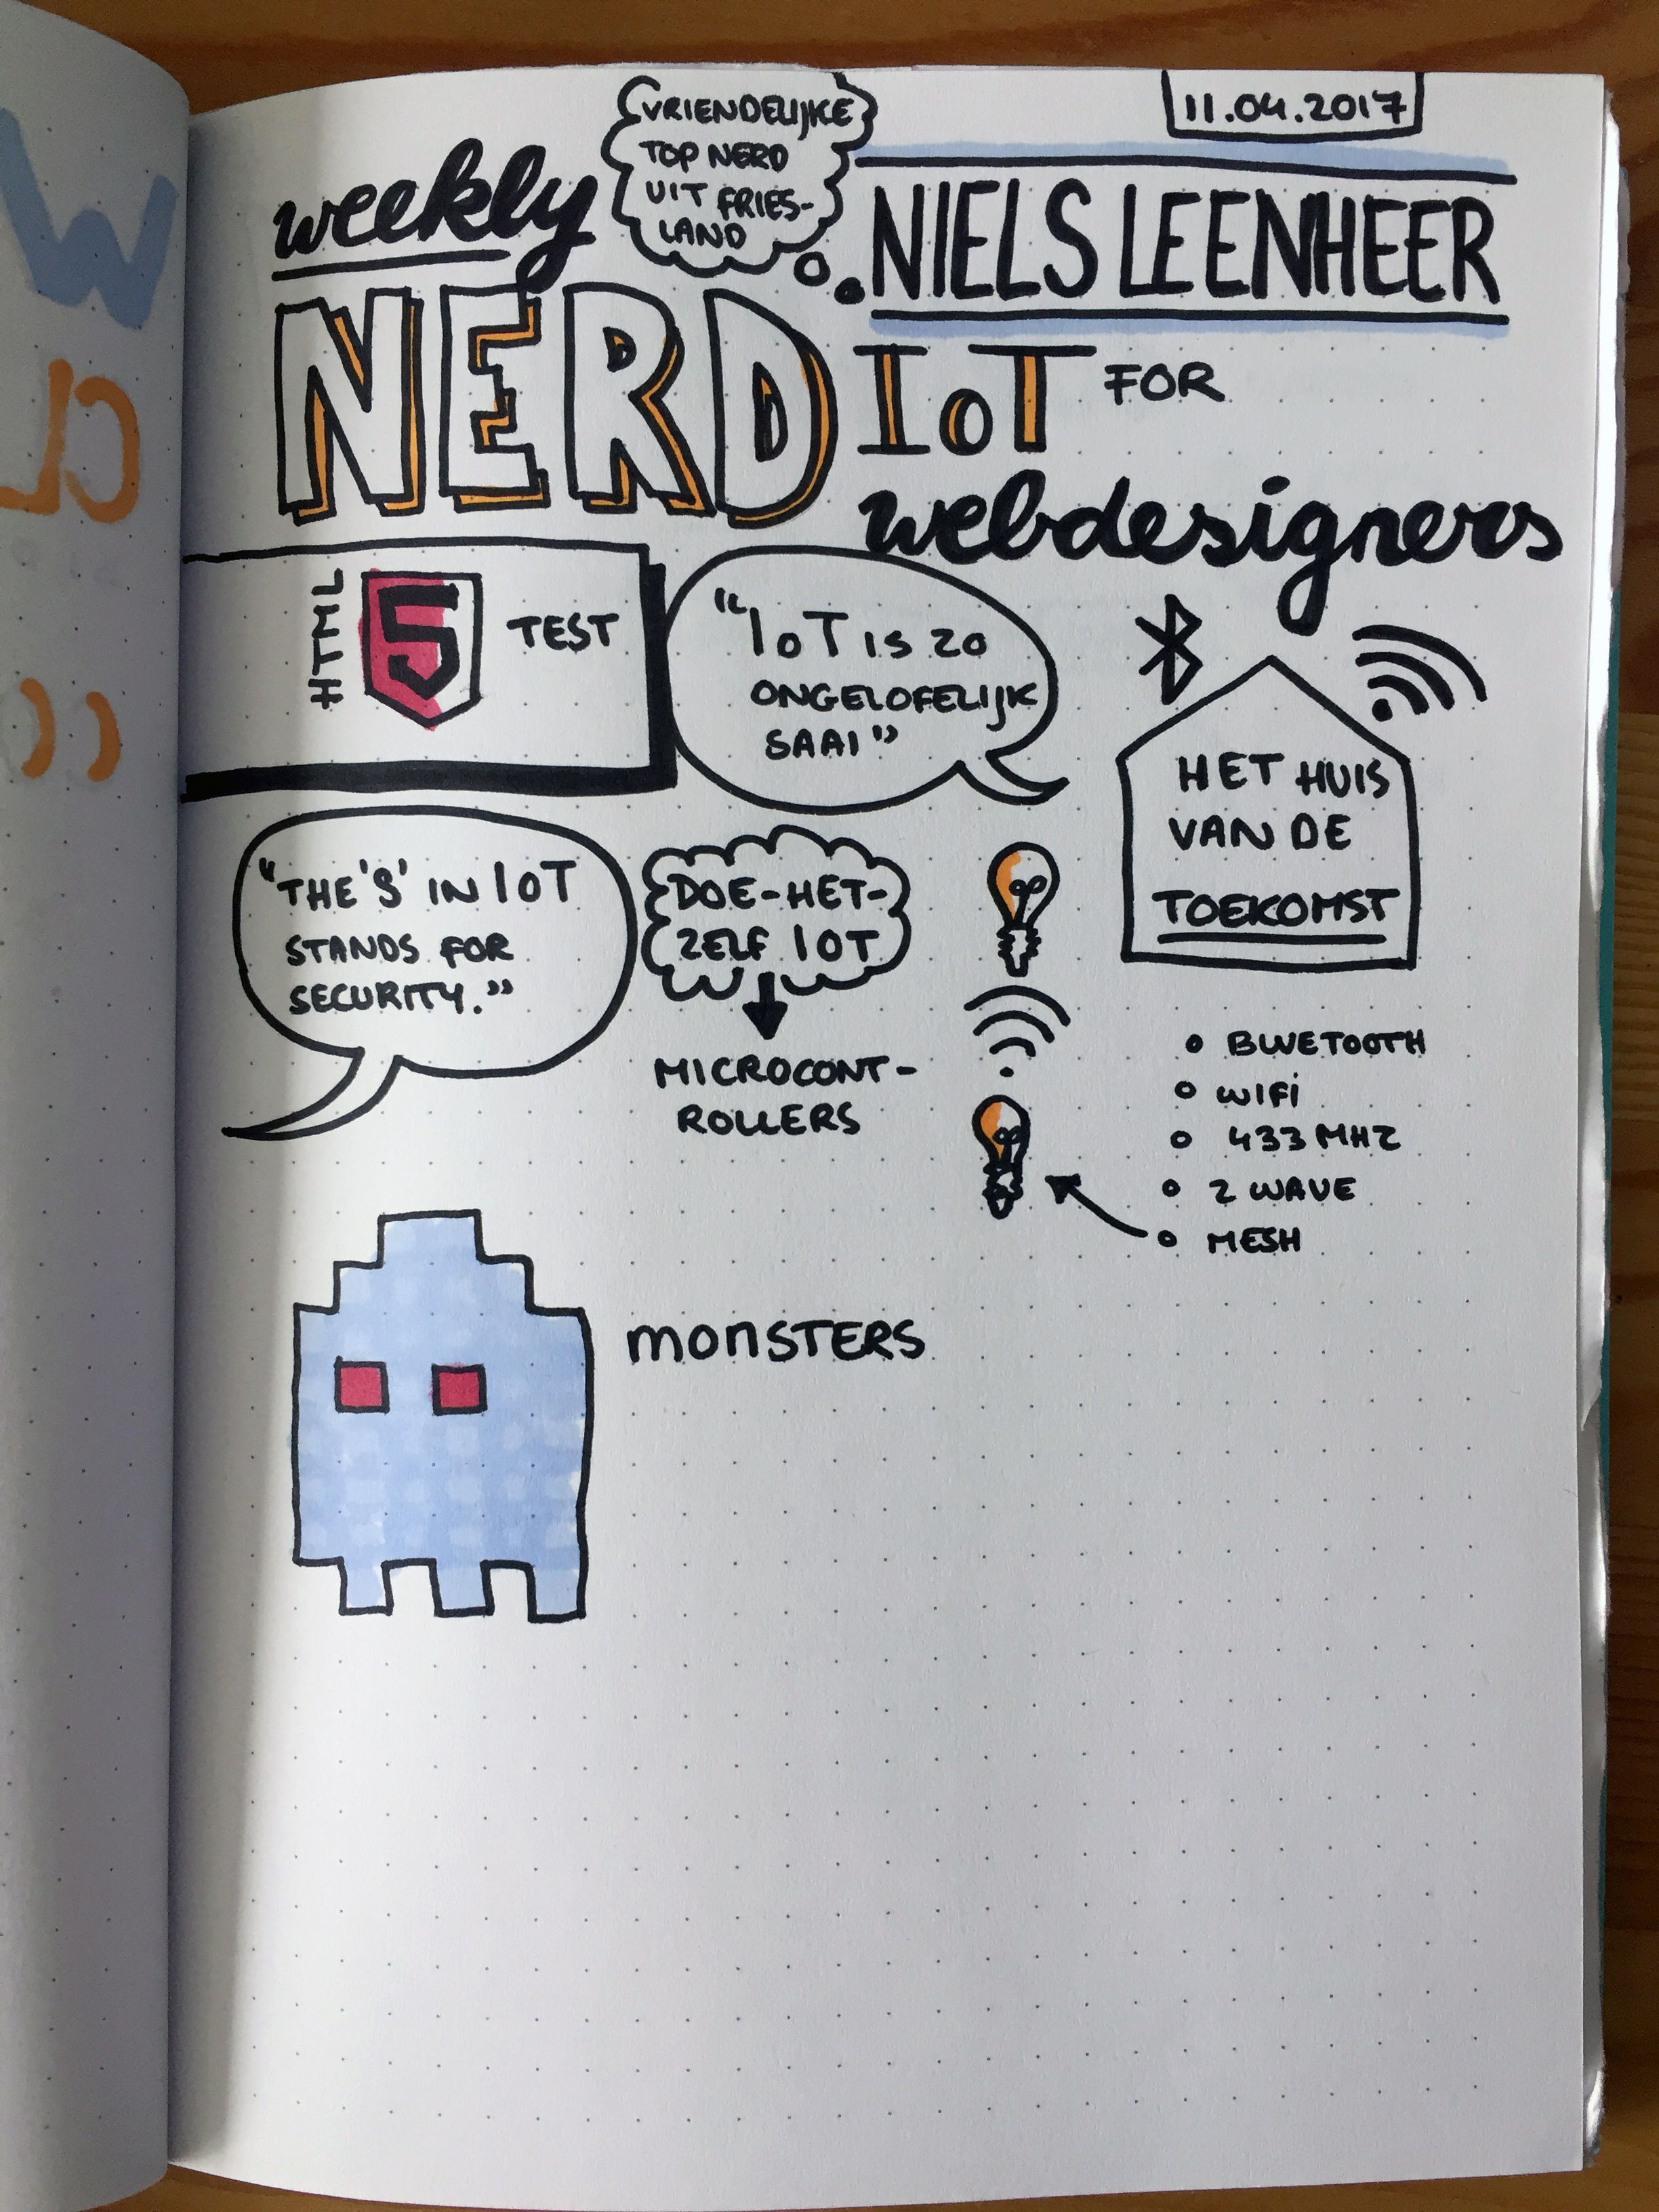 11.04.2017
weekly
VRIENDELIJKE
TOP NERD
UIT FRIES-
LAND
NIELS LEENHEER
NERD
IoT FOR
webdesigners
HTML 5 TEST
"IoT IS ZO
ONGELOFELIJK
SAAI"
HET HUIS
VAN DE
TOEKOMST
"THE 'S' IN IOT
STANDS FOR
SECURITY."
DOE-HET-
ZELF IOT
MICROCONT-
ROLLERS
BLUETOOTH
WIFI
433 MHZ
Z WAVE
MESH
monsters
W
CL